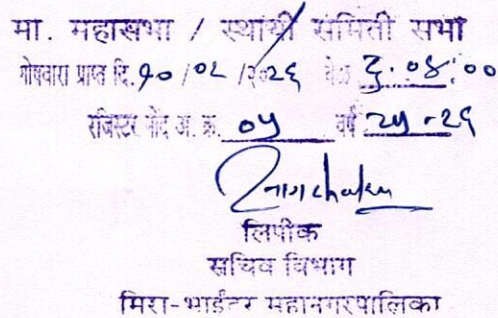 मा. महासभा / स्थायी समिती सभा
गोषवारा प्राप्त दि. १०/०२/२०२६ वेळ दु. ०४:००
रजिस्टर नोंद अ. क्र. ०५ वर्ष २५-२६
लिपीक
सचिव विभाग
मिरा-भाईंदर महानगरपालिका